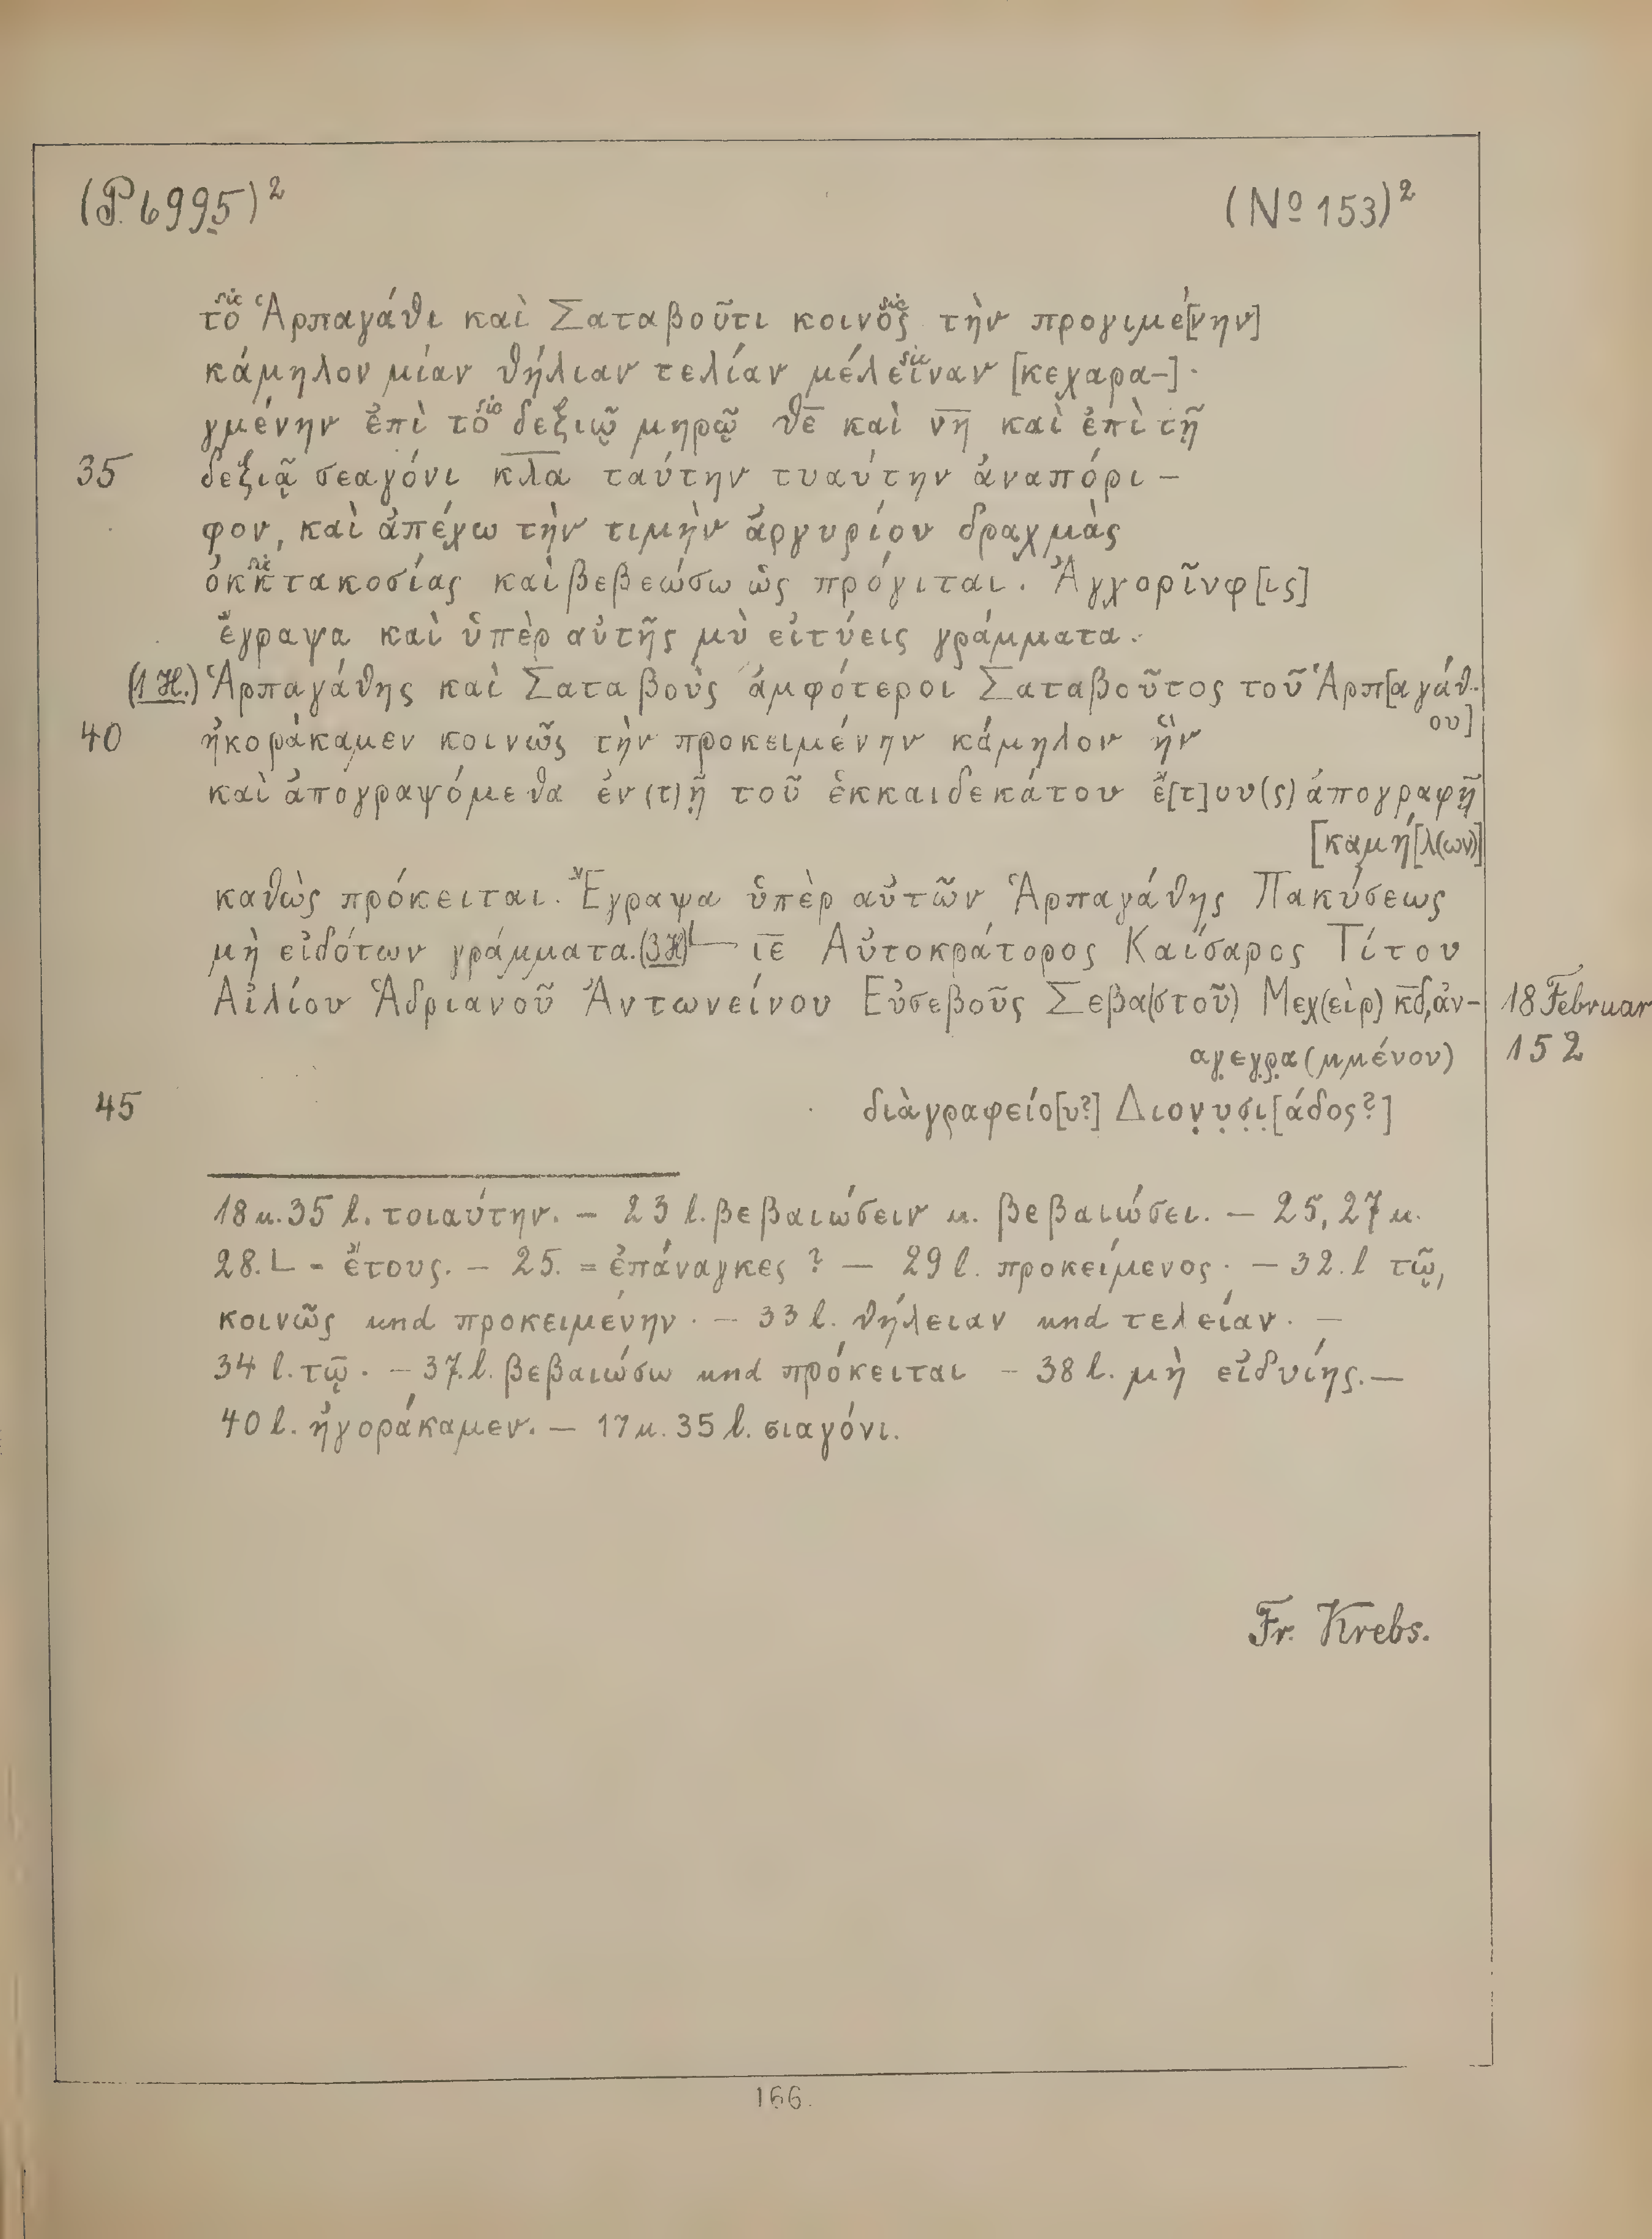 (P. 6995)² (Nº 153)²
sic sic
το Ἁρπαγάθι καὶ Σαταβοῦτι κοινὸς τὴν προγιμέ[νην]
sic
κάμηλον μίαν θήλιαν τελίαν μέλειναν [κεχαρα-]
sic
γμένην ἐπὶ το δεξιῷ μηρῷ θε̅ καὶ νη̅ καὶ ἐπὶ τῇ
35 δεξιᾷ σεαγόνι κλ̅α̅ ταύτην τυαύτην ἀναπόρι-
φον, καὶ ἀπέχω τὴν τιμὴν ἀργυρίου δραχμὰς
sic
ὀκκτακοσίας καὶ βεβεώσω ὡς πρόγιται. Ἀγχορῖνφ[ις]
ἔγραψα καὶ ὑπὲρ αὐτῆς μὺ εἰτύεις γράμματα.
(1 H.) Ἁρπαγάθης καὶ Σαταβοὺς ἀμφότεροι Σαταβοῦτος τοῦ Ἁρπ[αγάθ-
ου]
40 ἠκοράκαμεν κοινῶς τὴν προκειμένην κάμηλον ἣν
καὶ ἀπογραψόμεθα ἐν (τ)ῇ τοῦ ἑκκαιδεκάτου ἔ[τ]ου(ς) ἀπογραφῇ
[καμή[λ(ων)]
καθὼς πρόκειται. Ἔγραψα ὑπὲρ αὐτῶν Ἁρπαγάθης Πακύσεως
μὴ εἰδότων γράμματα. (3 H) L ιε̅ Αὐτοκράτορος Καίσαρος Τίτου
Αἰλίου Ἁδριανοῦ Ἀντωνείνου Εὐσεβοῦς Σεβα(στοῦ) Μεχ(εὶρ) κ̅δ̅, ἀν- 18 Februar
αγεγρα(μμένου) 152
45 διὰ γραφείο[υ?] Διονυσι[άδος?]
18 u. 35 l. τοιαύτην. — 23 l. βεβαιώσειν u. βεβαιώσει. — 25, 27 u.
28. L = ἔτους. — 25. = ἐπάναγκες ? — 29 l. προκείμενος. — 32. l τῷ,
κοινῶς und προκειμένην. — 33 l. θήλειαν und τελείαν. —
34 l. τῷ. — 37. l. βεβαιώσω und πρόκειται — 38 l. μὴ εἰδυίης. —
40 l. ἠγοράκαμεν. — 17 u. 35 l. σιαγόνι.
Fr. Krebs.
166.